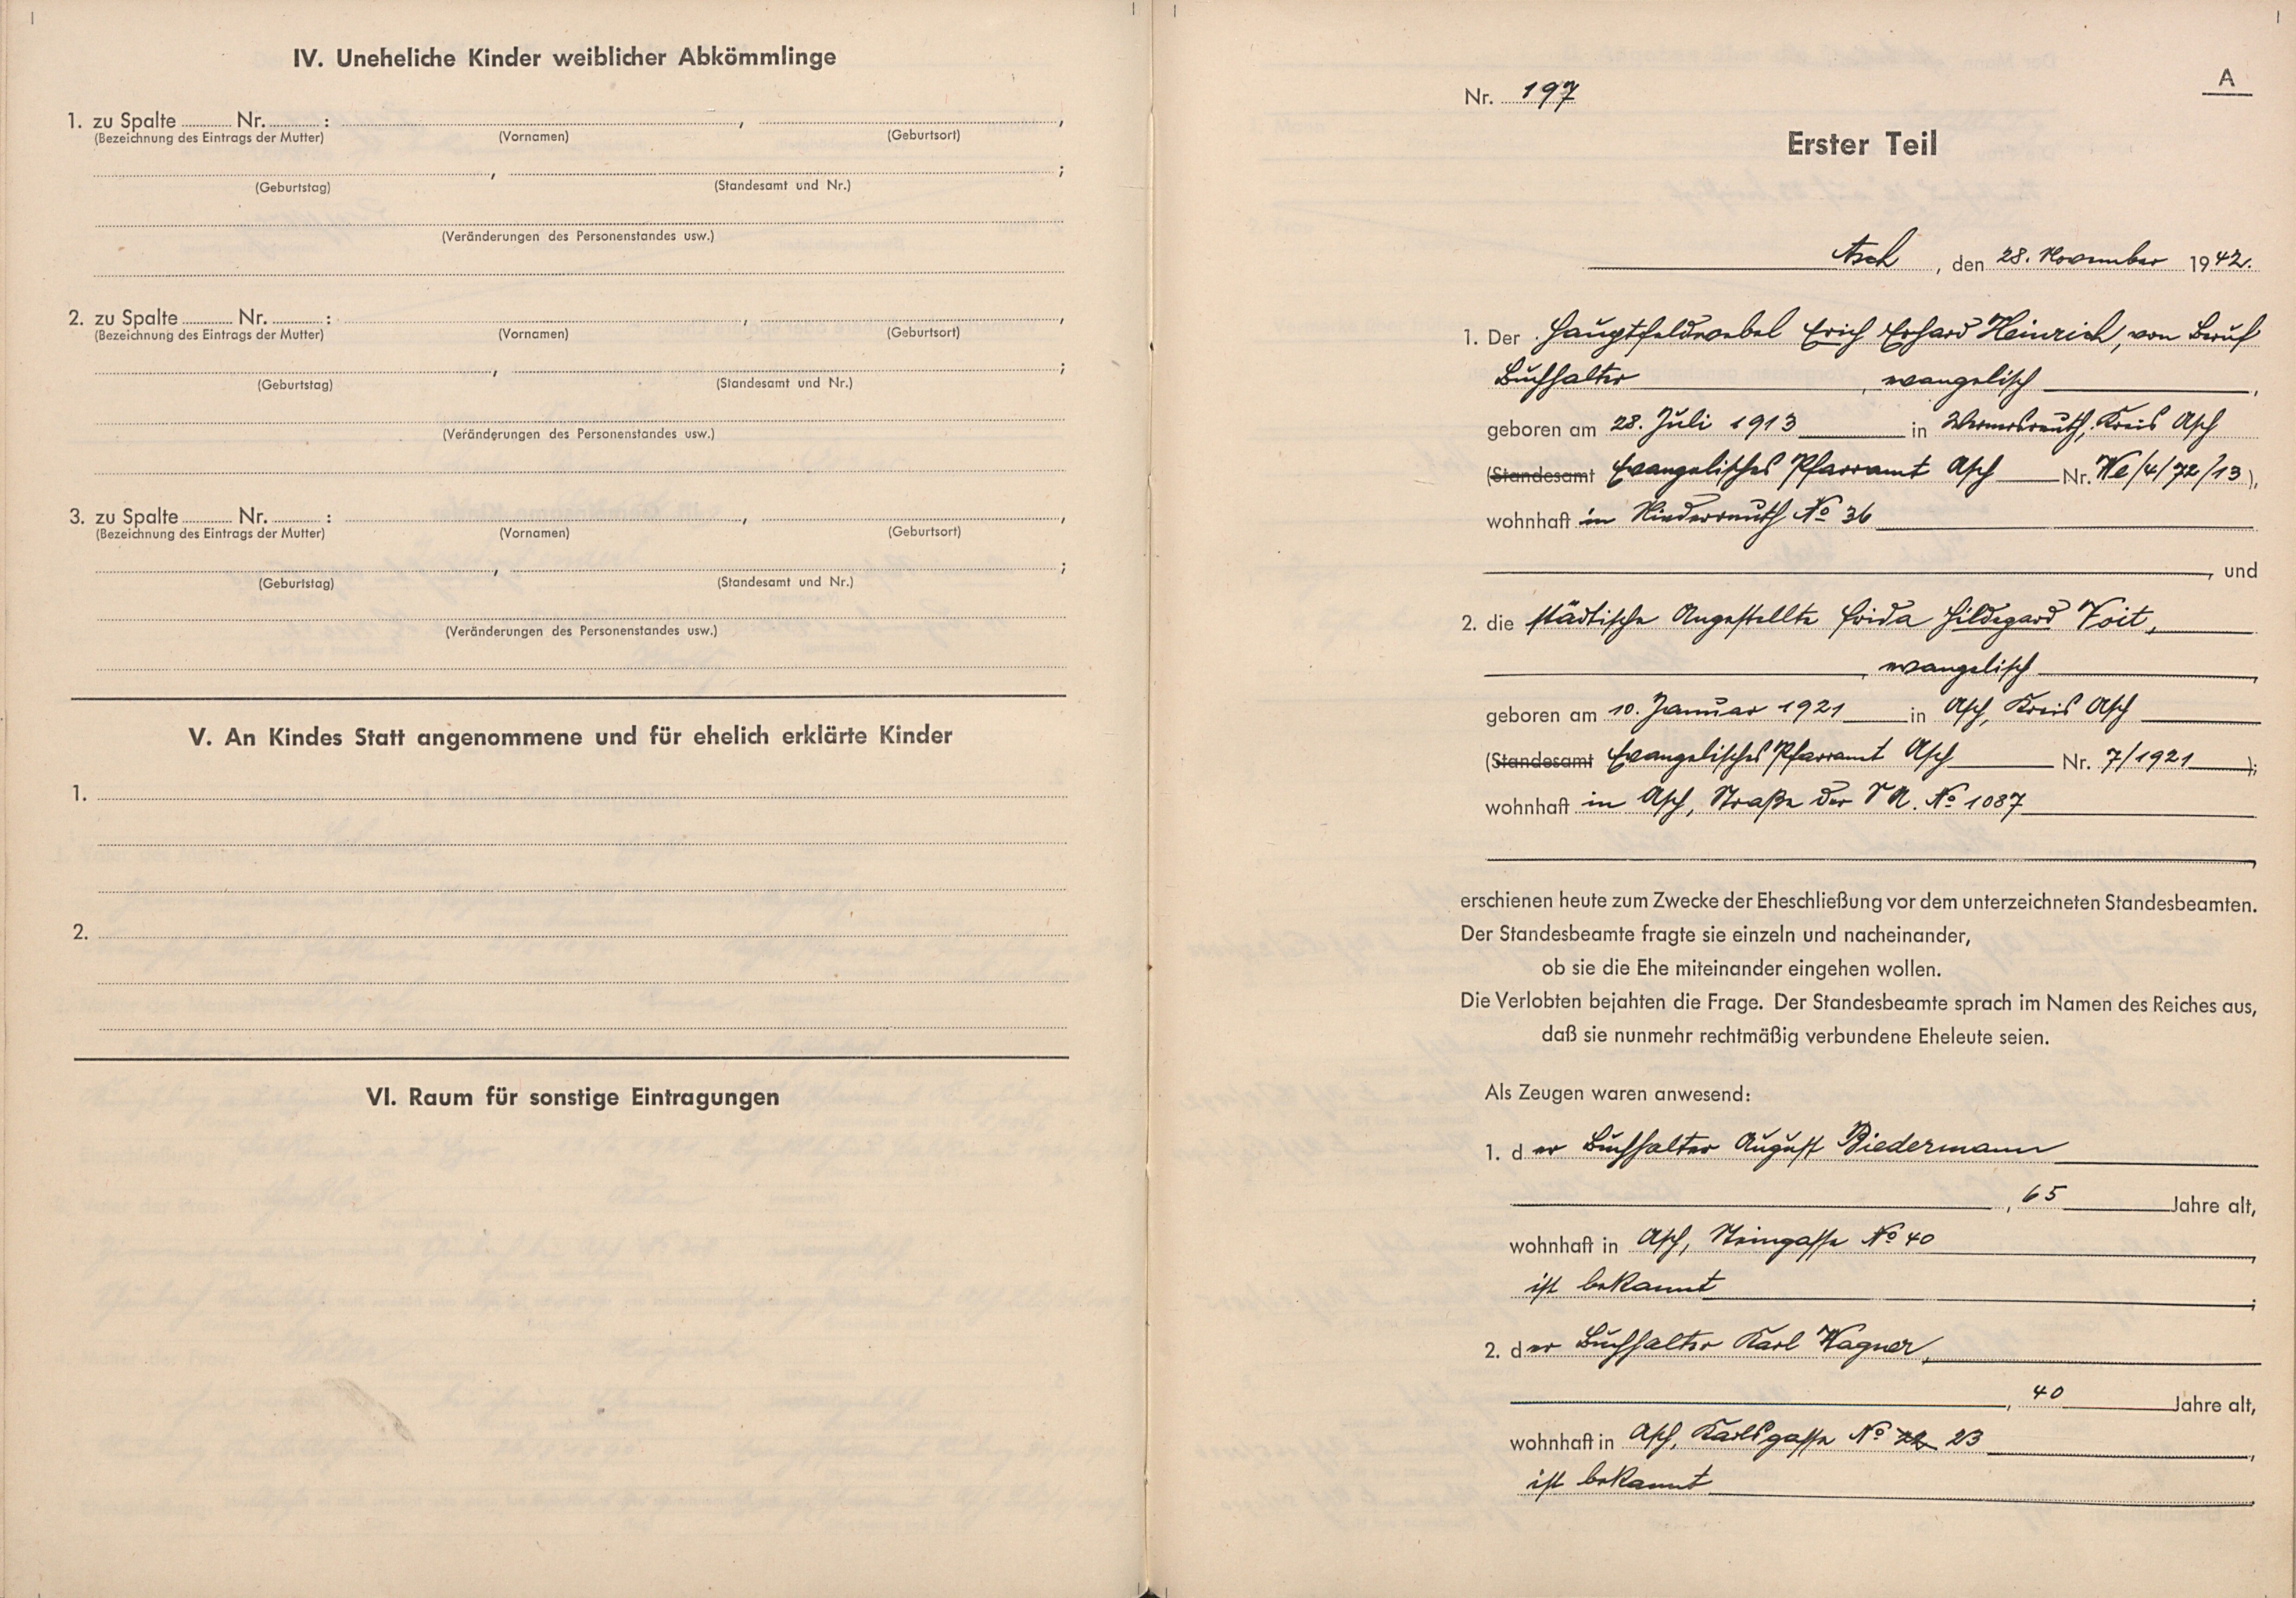 IV. Uneheliche Kinder weiblicher Abkömmlinge
1. zu Spalte ........ Nr. ........ : ........ , ........ ,
(Bezeichnung des Eintrags der Mutter) (Vornamen) (Geburtsort)
........ , ........ ;
(Geburtstag) (Standesamt und Nr.)
(Veränderungen des Personenstandes usw.)
2. zu Spalte ........ Nr. ........ : ........ , ........ ,
(Bezeichnung des Eintrags der Mutter) (Vornamen) (Geburtsort)
........ , ........ ;
(Geburtstag) (Standesamt und Nr.)
(Veränderungen des Personenstandes usw.)
3. zu Spalte ........ Nr. ........ : ........ , ........ ,
(Bezeichnung des Eintrags der Mutter) (Vornamen) (Geburtsort)
........ , ........ ;
(Geburtstag) (Standesamt und Nr.)
(Veränderungen des Personenstandes usw.)
V. An Kindes Statt angenommene und für ehelich erklärte Kinder
1.
2.
VI. Raum für sonstige Eintragungen
A
Nr. 197
Erster Teil
Asch, den 28. November 1942.
1. Der Hauptfeldwebel Erich Erhard Heinrich, von Beruf
Buchhalter, evangelisch,
geboren am 28. Juli 1913 in Wernersreuth, Kreis Asch
(Standesamt Evangelisches Pfarramt Asch Nr. We/4/72/13),
wohnhaft in Niederreuth No 36
, und
2. die städtische Angestellte Frida Hildegard Voit,
, evangelisch,
geboren am 10. Januar 1921 in Asch, Kreis Asch
(Standesamt Evangelisches Pfarramt Asch Nr. 7/1921);
wohnhaft in Asch, Straße der SA. No 1087
,
erschienen heute zum Zwecke der Eheschließung vor dem unterzeichneten Standesbeamten.
Der Standesbeamte fragte sie einzeln und nacheinander,
ob sie die Ehe miteinander eingehen wollen.
Die Verlobten bejahten die Frage. Der Standesbeamte sprach im Namen des Reiches aus,
daß sie nunmehr rechtmäßig verbundene Eheleute seien.
Als Zeugen waren anwesend:
1. der Buchhalter August Biedermann
, 65 Jahre alt,
wohnhaft in Asch, Steingasse No 40,
ist bekannt;
2. der Buchhalter Karl Wagner,
, 40 Jahre alt,
wohnhaft in Asch, Karlsgasse No 22 23,
ist bekannt.